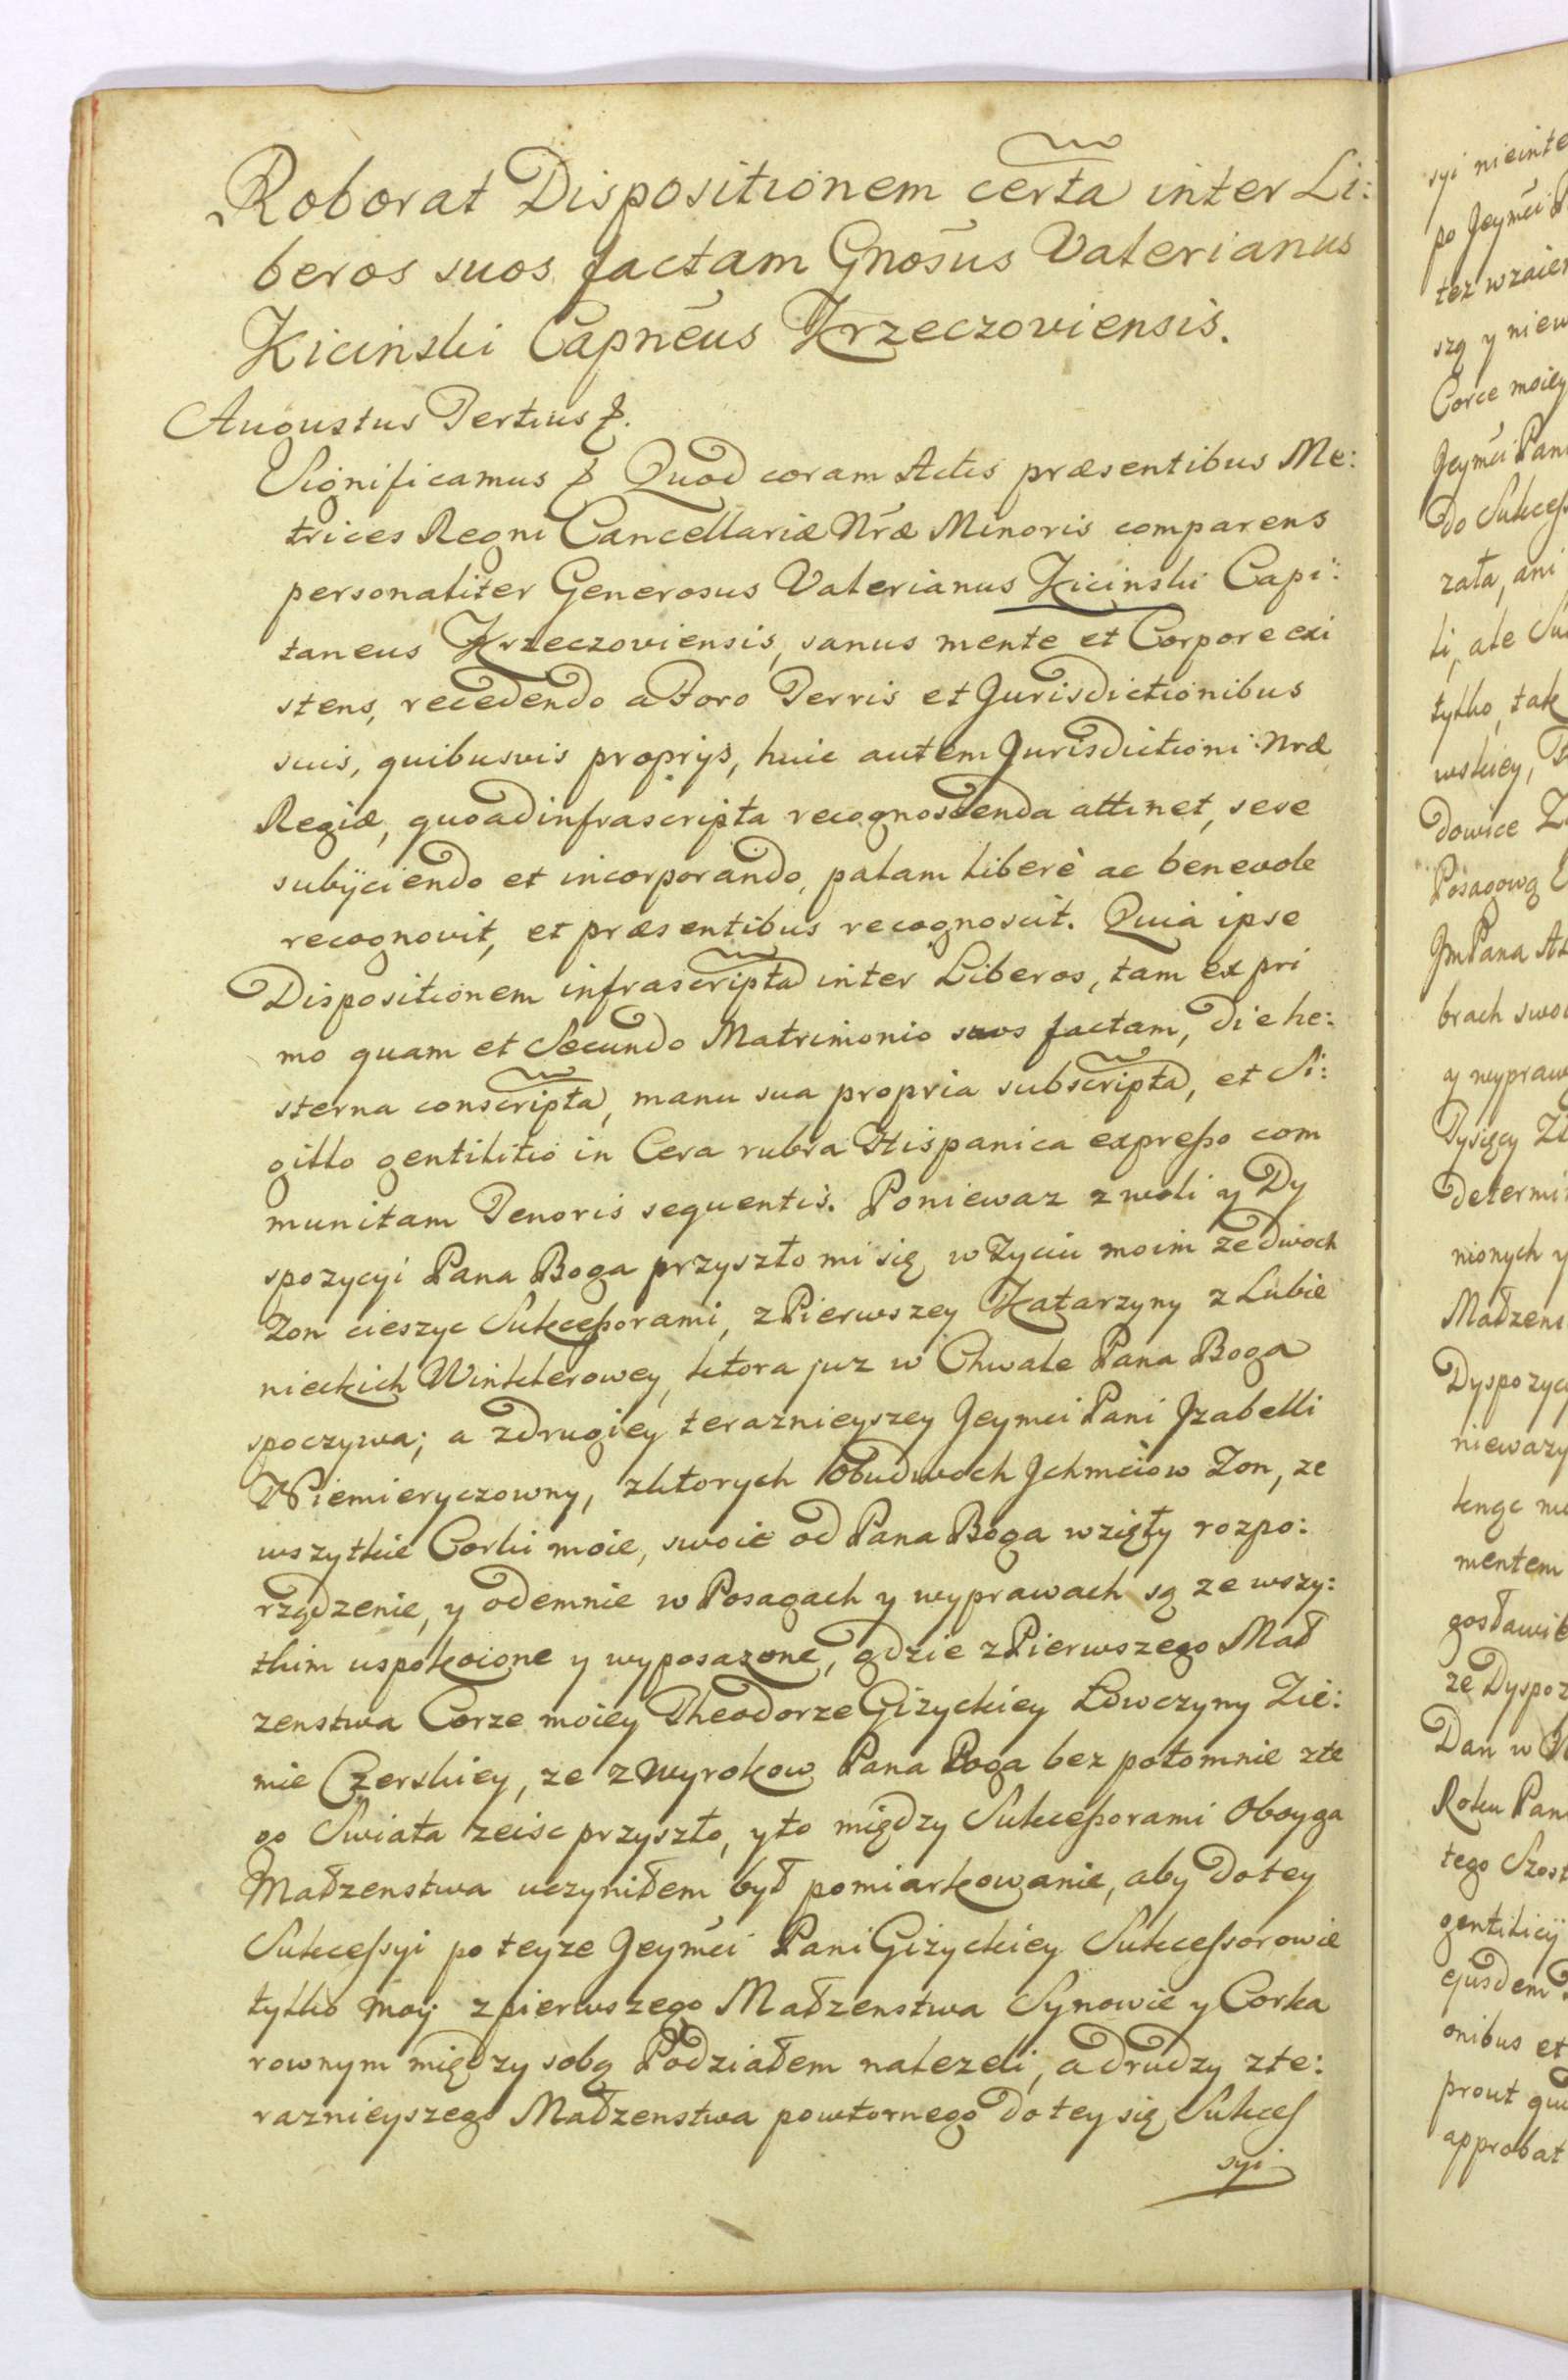 Roborat Dispositionem certa inter Li:
beros suos factam Gnosus Valerianus
Kicinski Capneus Krzeczoviensis.
Augustus Tertius &.
Significamus & Quod coram Actis præsentibus Me:
trices Regni Cancellariæ Nræ Minoris comparens
personaliter Generosus Valerianus Kicinski Capi:
taneus Krzeczoviensis, sanus mente et Corpore exi
stens, recedendo a Foro Terris et Jurisdictionibus
suis, quibusvis proprijs, huic autem Jurisdictioni Nræ
Regiæ, quoad infrascripta recognoscenda attinet, sese
subijciendo et incorporando, palam liberè ac benevole
recognovit, et præsentibus recognoscit. Quia ipse
Dispositionem infrascripta inter Liberos, tam ex pri
mo quam et Secundo Matrimonio suos factam, die he:
sterna conscripta, manu sua propria subscripta, et Si:
gillo gentilitio in Cera rubra Hispanica expresso com
munitam Tenoris sequentis. Poniewaz z woli y Dy
spozycyi Pana Boga przyszło mi się w Zyciu moim ze dwoch
Zon cieszyc Sukcessorami, z Pierwszey Katarzyny z Lubie
nieckich Winklerowey, ktora juz w Chwale Pana Boga
spoczywa; a z drugiey teraznieyszey Jeymci Pani Jzabelli
Niemieryczowny, z ktorych Obudwoch Jchmciow Zon, ze
wszytkie Corki moie, swoie od Pana Boga wzięły rozpo:
rządzenie, y odemnie w Posagach y wyprawach są ze wszy:
tkim uspokoione y wyposazone, gdzie z Pierwszego Mał
zenstwa Corze moiey Theodorze Giżyckiey Łowczyny Zie:
mie Czerskiey, ze z Wyrokow Pana Boga bez potomnie z te
go Swiata zeisc przyszło, y to między Sukcessorami Oboyga
Małzenstwa uczyniłem był pomiarkowanie, aby do tey
Sukcessyi po teyze Jeymci Pani Giżyckiey Sukcessorowie
tylko moij z pierwszego Małzenstwa Synowie y Corka
rownym między sobą Podziałem nalezeli, a drudzy z te:
raznieyszego Małzenstwa powtornego do tey się Sukces
syi
syi nieinte
po Jeymci P
tez wzaie
szą y niew
Corce moiey
Jeymci Pani
do Sukces
zała, ani
li, ale Su
tylko, tak
wskiey,
dowice
Posagową
Jm Pana
brach swoi
y wypraw
Tysięcy
determi
nionych y
Małzens
Dyspozyc
niewazy
mentem
gosławi
ze Dyspoz
Dan w
Roku Pan
tego Szost
gentilicij
ejusdem
onibus et
prout
approbat